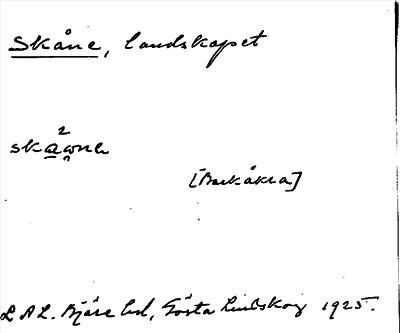 Skåne, landskapet
2
skaωnɐ
[Barkåkra]
LAL. Bjäre hd, Gösta Lindskog 1925.